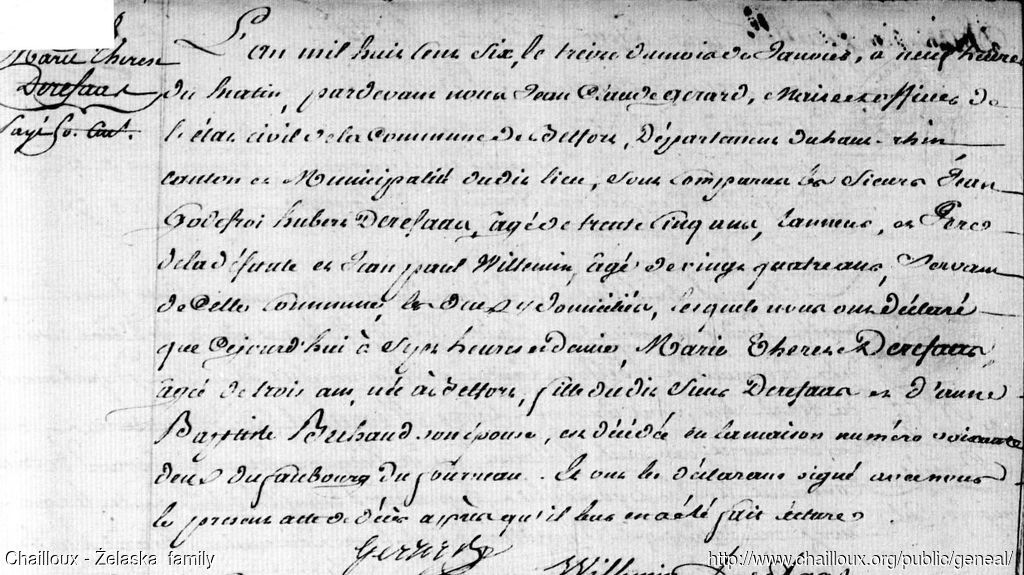 Marie Therese
Deresaas
L'an mil huit cent six, le treize du mois de Janvier, à neuf heures
du matin, pardevant nous Jean Claude Gerard, Maire et officier de
l'état civil de la Commune de Belfort, Département du haut-rhin
canton et Municipalité du dit lieu, sont comparus les Sieurs Jean
Godefroi hubert Deresaas, agé de trente cinq ans, tanneur, et Pere
de la défunte et Jean paul Willemin, âgé de vingt quatre ans, Servant
de Cette Commune, les deux y domiciliés, lesquels nous ont déclaré
que Cejourd'hui à Sept heures et demies, Marie Therese Deresaas,
agé de trois ans, née à Belfort, fille du dit Sieur Deresaas et d'anne
Baptiste Buchaud son épouse, est décédée en la maison numéro soixante
deux du faubourg du fourneau. Et ont les déclarans signé avec nous
le present acte de décès après qu'il leur en a été fait lecture
Gerard
Willemin
Chailloux - Želaska family
http://www.chailloux.org/public/geneal/